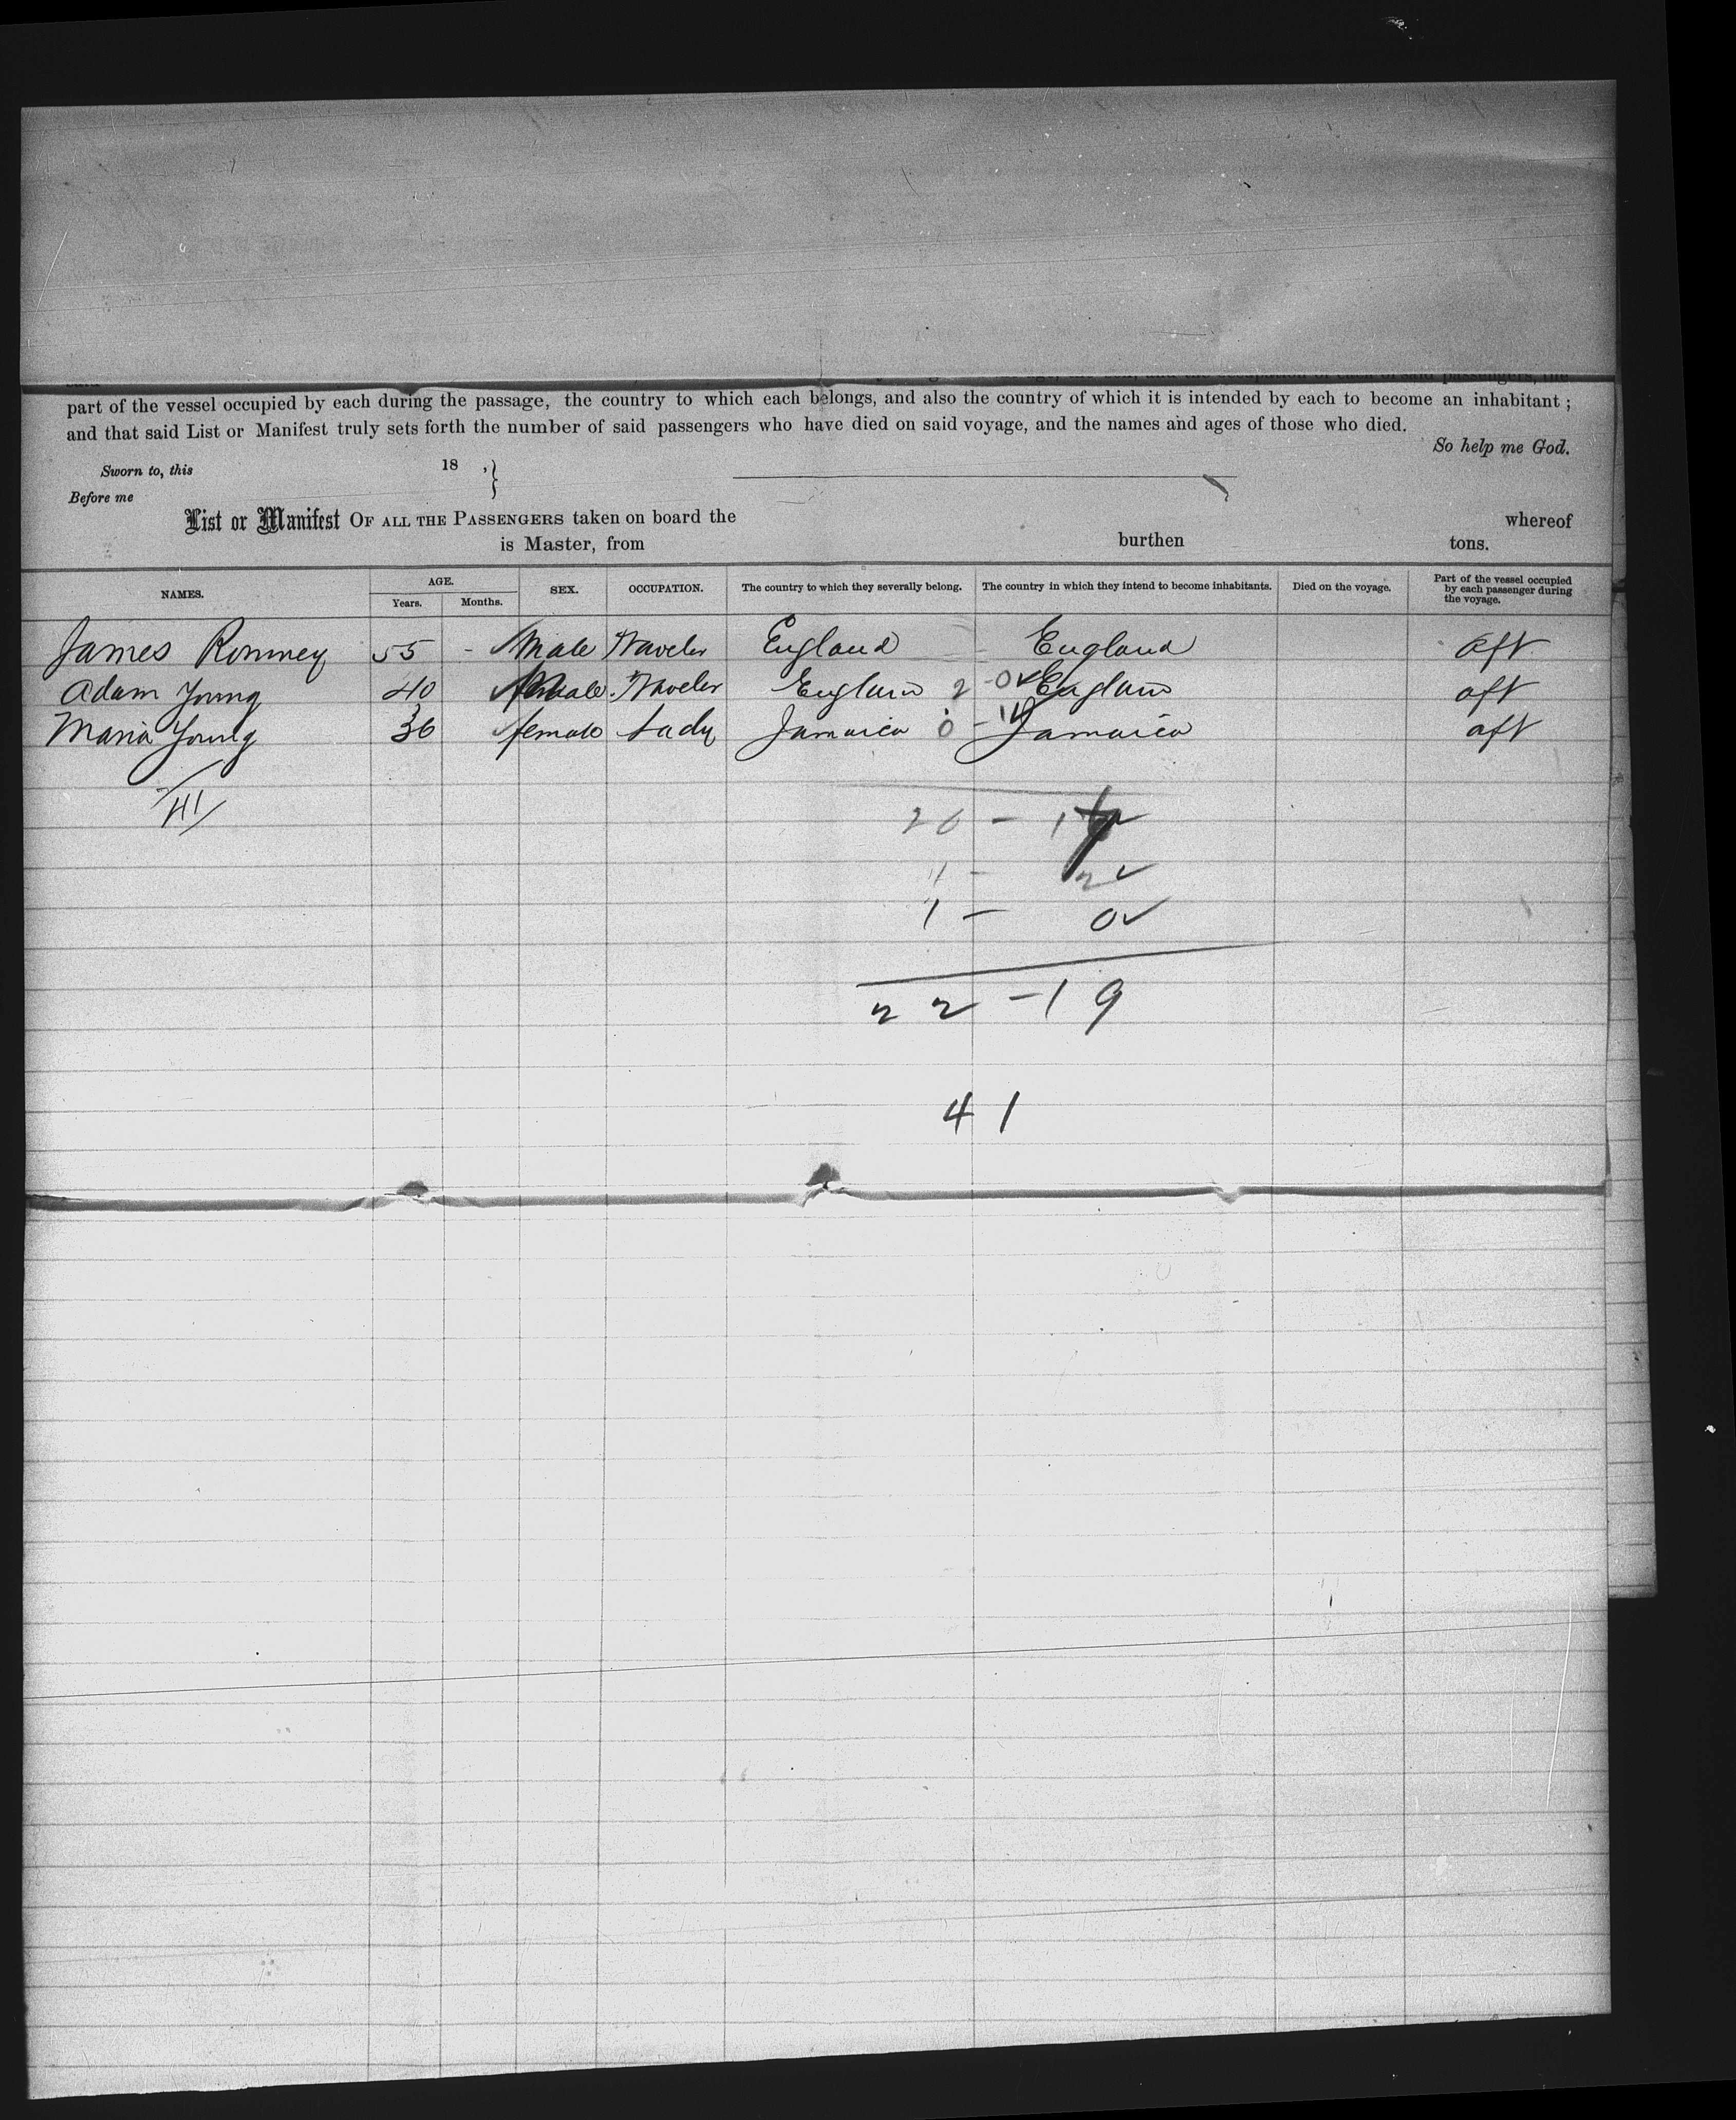 part of the vessel occupied by each during the passage, the country to which each belongs, and also the country of which it is intended by each to become an inhabitant;
and that said List or Manifest truly sets forth the number of said passengers who have died on said voyage, and the names and ages of those who died.
So help me God.
Sworn to, this 18 , }
Before me
List or Manifest OF ALL THE PASSENGERS taken on board the whereof
is Master, from burthen tons.
NAMES. AGE. Years. Months. SEX. OCCUPATION. The country to which they severally belong. The country in which they intend to become inhabitants. Died on the voyage. Part of the vessel occupied by each passenger during the voyage.
James Romney 55 - Male Traveler England England aft
Adam Young 40 Male Traveler England 2 - 0 England aft
Maria Young 36 female Lady Jamaica 0 - 1 Jamaica aft
41
20 - 1
1 - 2
1 - 0
22 - 19
41